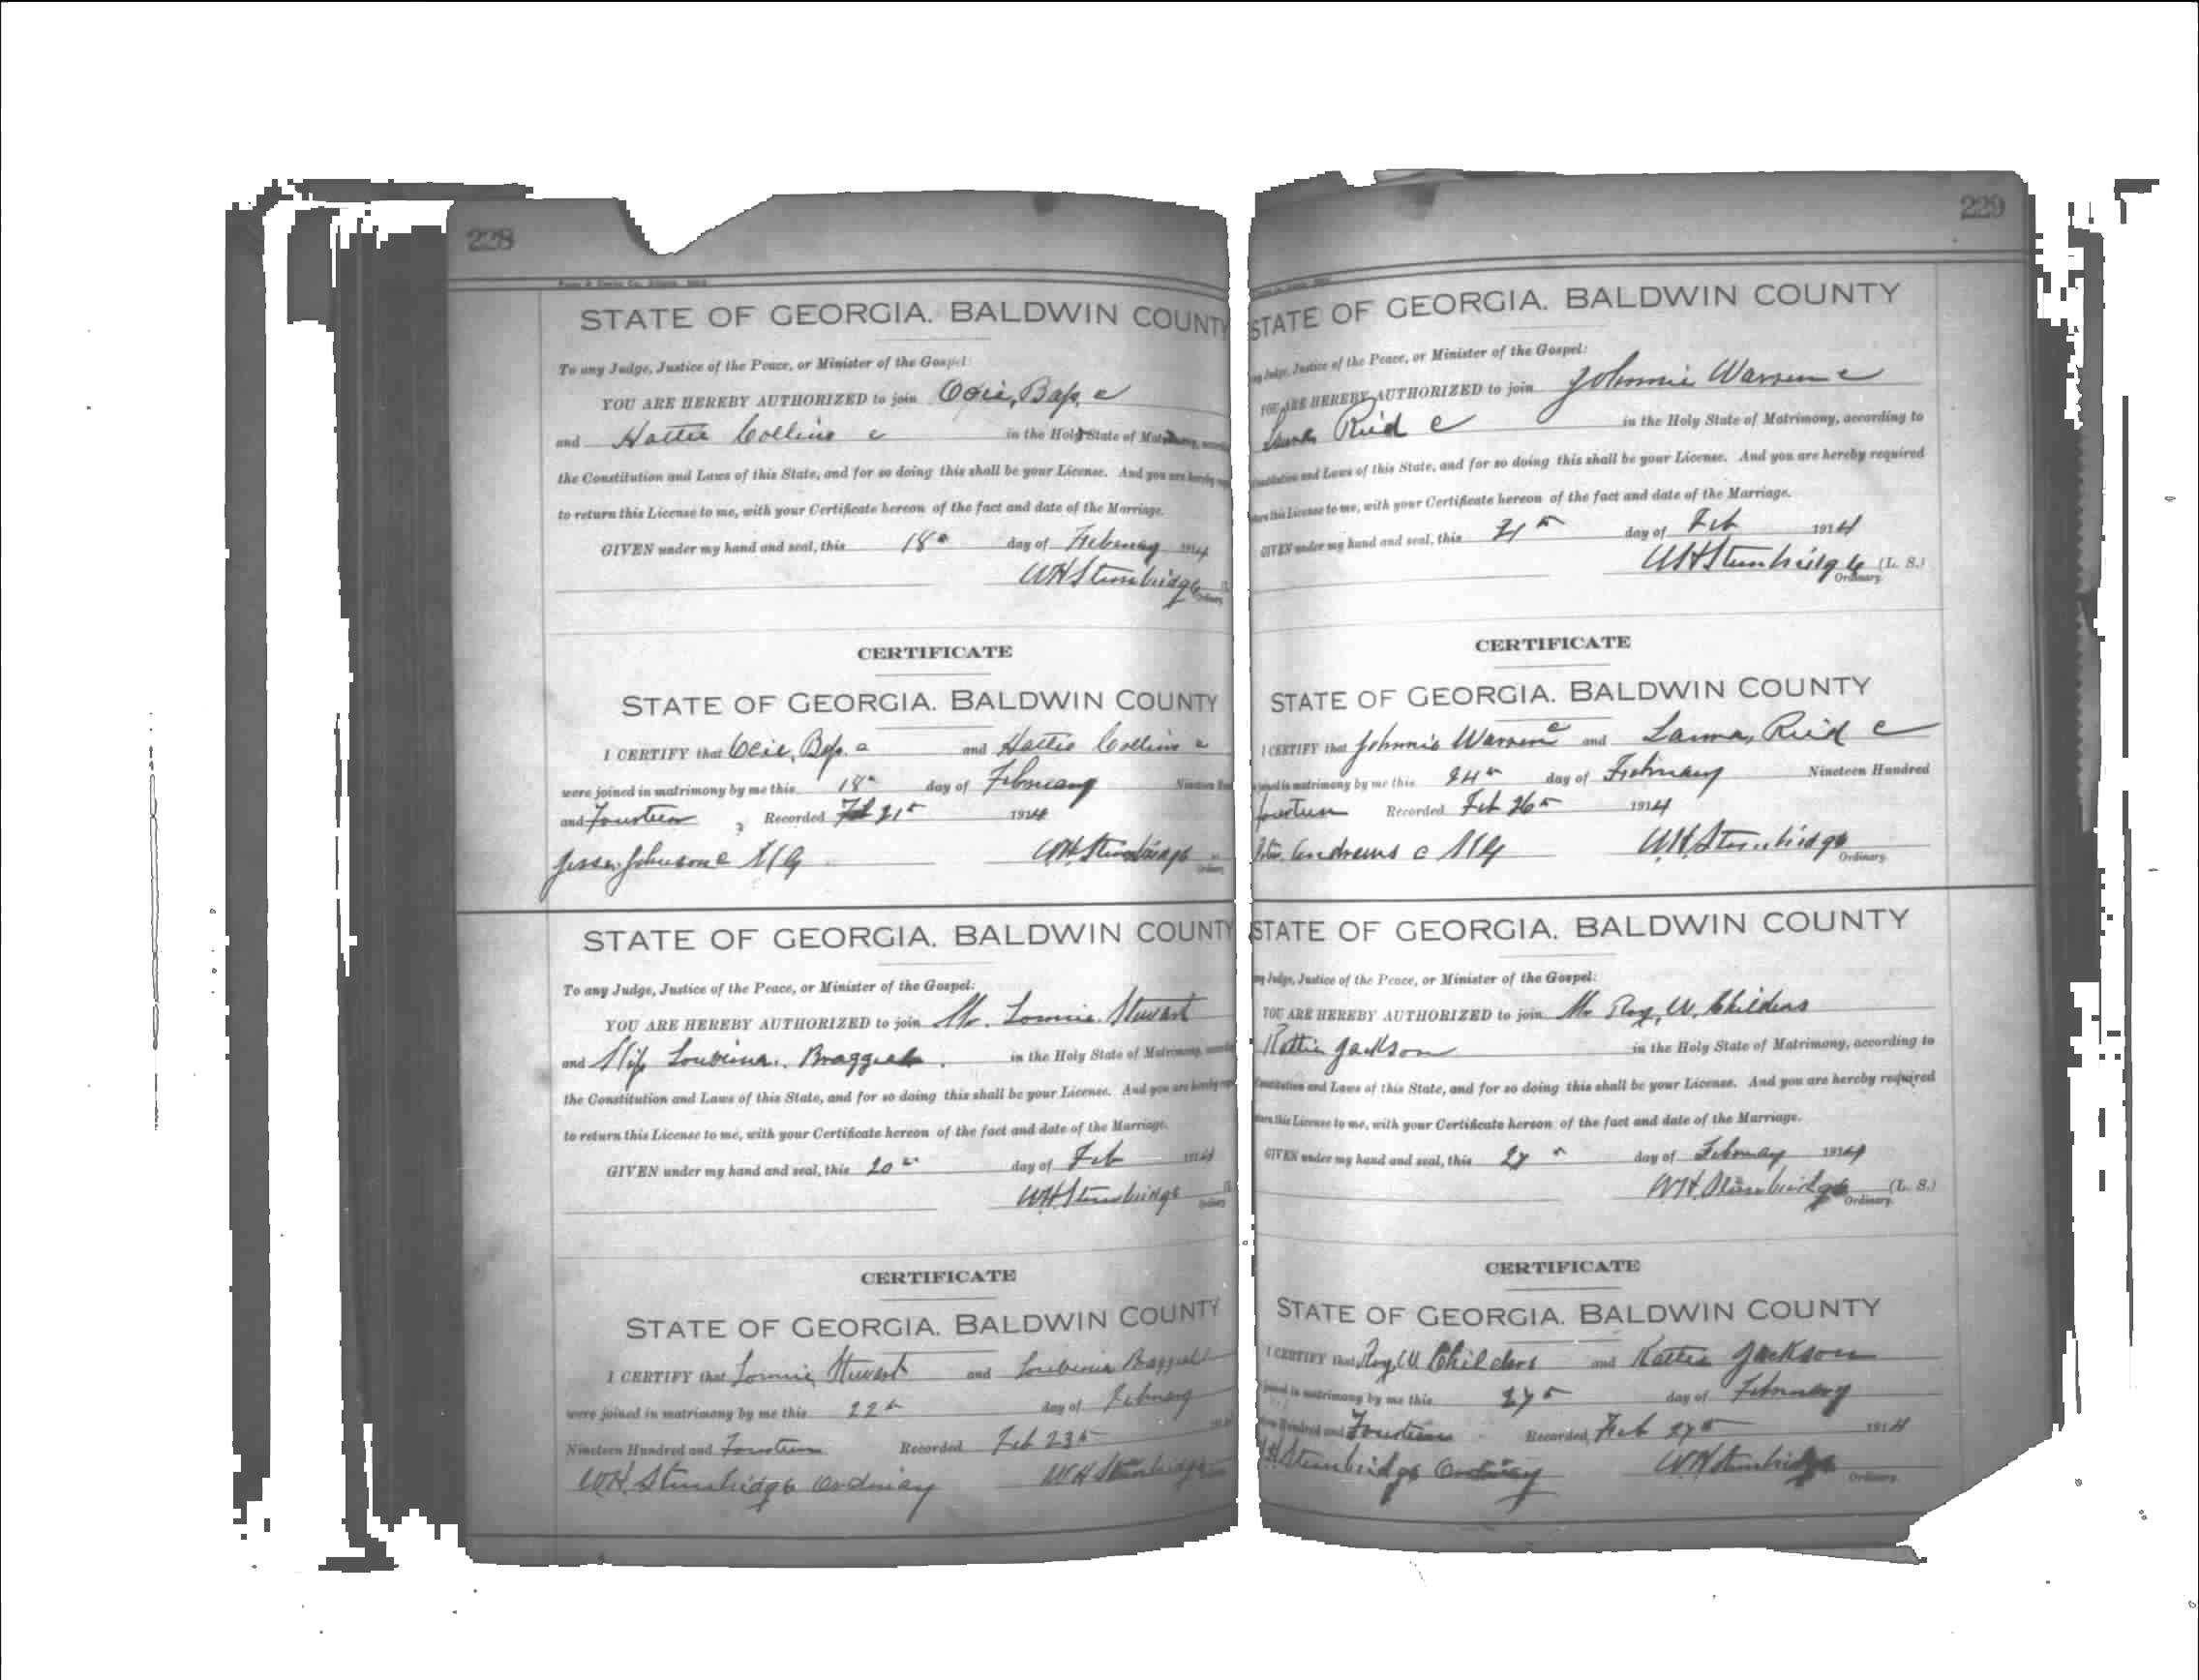 228
STATE OF GEORGIA. BALDWIN COUNTY
To any Judge, Justice of the Peace, or Minister of the Gospel:
YOU ARE HEREBY AUTHORIZED to join Ocie, Bass, c
and Hattie Collins c in the Holy State of Matrimony,
the Constitution and Laws of this State, and for so doing this shall be your License. And you are hereby
to return this License to me, with your Certificate hereon of the fact and date of the Marriage.
GIVEN under my hand and seal, this 18th day of February 1914
WH Stembridge
Ordinary
CERTIFICATE
STATE OF GEORGIA. BALDWIN COUNTY
I CERTIFY that Ocie, Bass. c and Hattie Collins c
were joined in matrimony by me this 18th day of February Nineteen
and Fourteen Recorded Feb 21st 1914
Jesse Johnson c MG WH Stembridge
Ordinary
STATE OF GEORGIA. BALDWIN COUNTY
To any Judge, Justice of the Peace, or Minister of the Gospel:
YOU ARE HEREBY AUTHORIZED to join Mr. Lonnie Stewart
and Miss Louvinia in the Holy State of Matrimony,
the Constitution and Laws of this State, and for so doing this shall be your License. And you are hereby
to return this License to me, with your Certificate hereon of the fact and date of the Marriage.
GIVEN under my hand and seal, this 20th day of Feb 1914
WH Stembridge
Ordinary
CERTIFICATE
STATE OF GEORGIA. BALDWIN COUNTY
I CERTIFY that Lonnie Stewart and Louvinia
were joined in matrimony by me this 22 day of February
Nineteen Hundred and Fourteen Recorded Feb 23
W.H. Stembridge Ordinary W H Stembridge
229
STATE OF GEORGIA. BALDWIN COUNTY
Judge, Justice of the Peace, or Minister of the Gospel:
YOU ARE HEREBY AUTHORIZED to join Johnnie Warren c
Reid c in the Holy State of Matrimony, according to
Constitution and Laws of this State, and for so doing this shall be your License. And you are hereby required
this License to me, with your Certificate hereon of the fact and date of the Marriage.
GIVEN under my hand and seal, this 21st day of Feb 1914
WH Stembridge (L. S.)
Ordinary
CERTIFICATE
STATE OF GEORGIA. BALDWIN COUNTY
I CERTIFY that Johnnie Warren c and Reid c
in matrimony by me this 24th day of February Nineteen Hundred
fourteen Recorded Feb 26th 1914
Andrews c MG W.H. Stembridge
Ordinary.
STATE OF GEORGIA. BALDWIN COUNTY
Judge, Justice of the Peace, or Minister of the Gospel:
YOU ARE HEREBY AUTHORIZED to join Mr Roy, W. Childers
Kattie Jackson in the Holy State of Matrimony, according to
Constitution and Laws of this State, and for so doing this shall be your License. And you are hereby required
this License to me, with your Certificate hereon of the fact and date of the Marriage.
GIVEN under my hand and seal, this 27 day of February 1914
W.H. Stembridge (L. S.)
Ordinary.
CERTIFICATE
STATE OF GEORGIA. BALDWIN COUNTY
I CERTIFY that Roy W Childers and Kattie Jackson
joined in matrimony by me this 27th day of February
Hundred and Fourteen Recorded Feb 27th 1914
Stembridge Ordinary WH Stembridge
Ordinary.